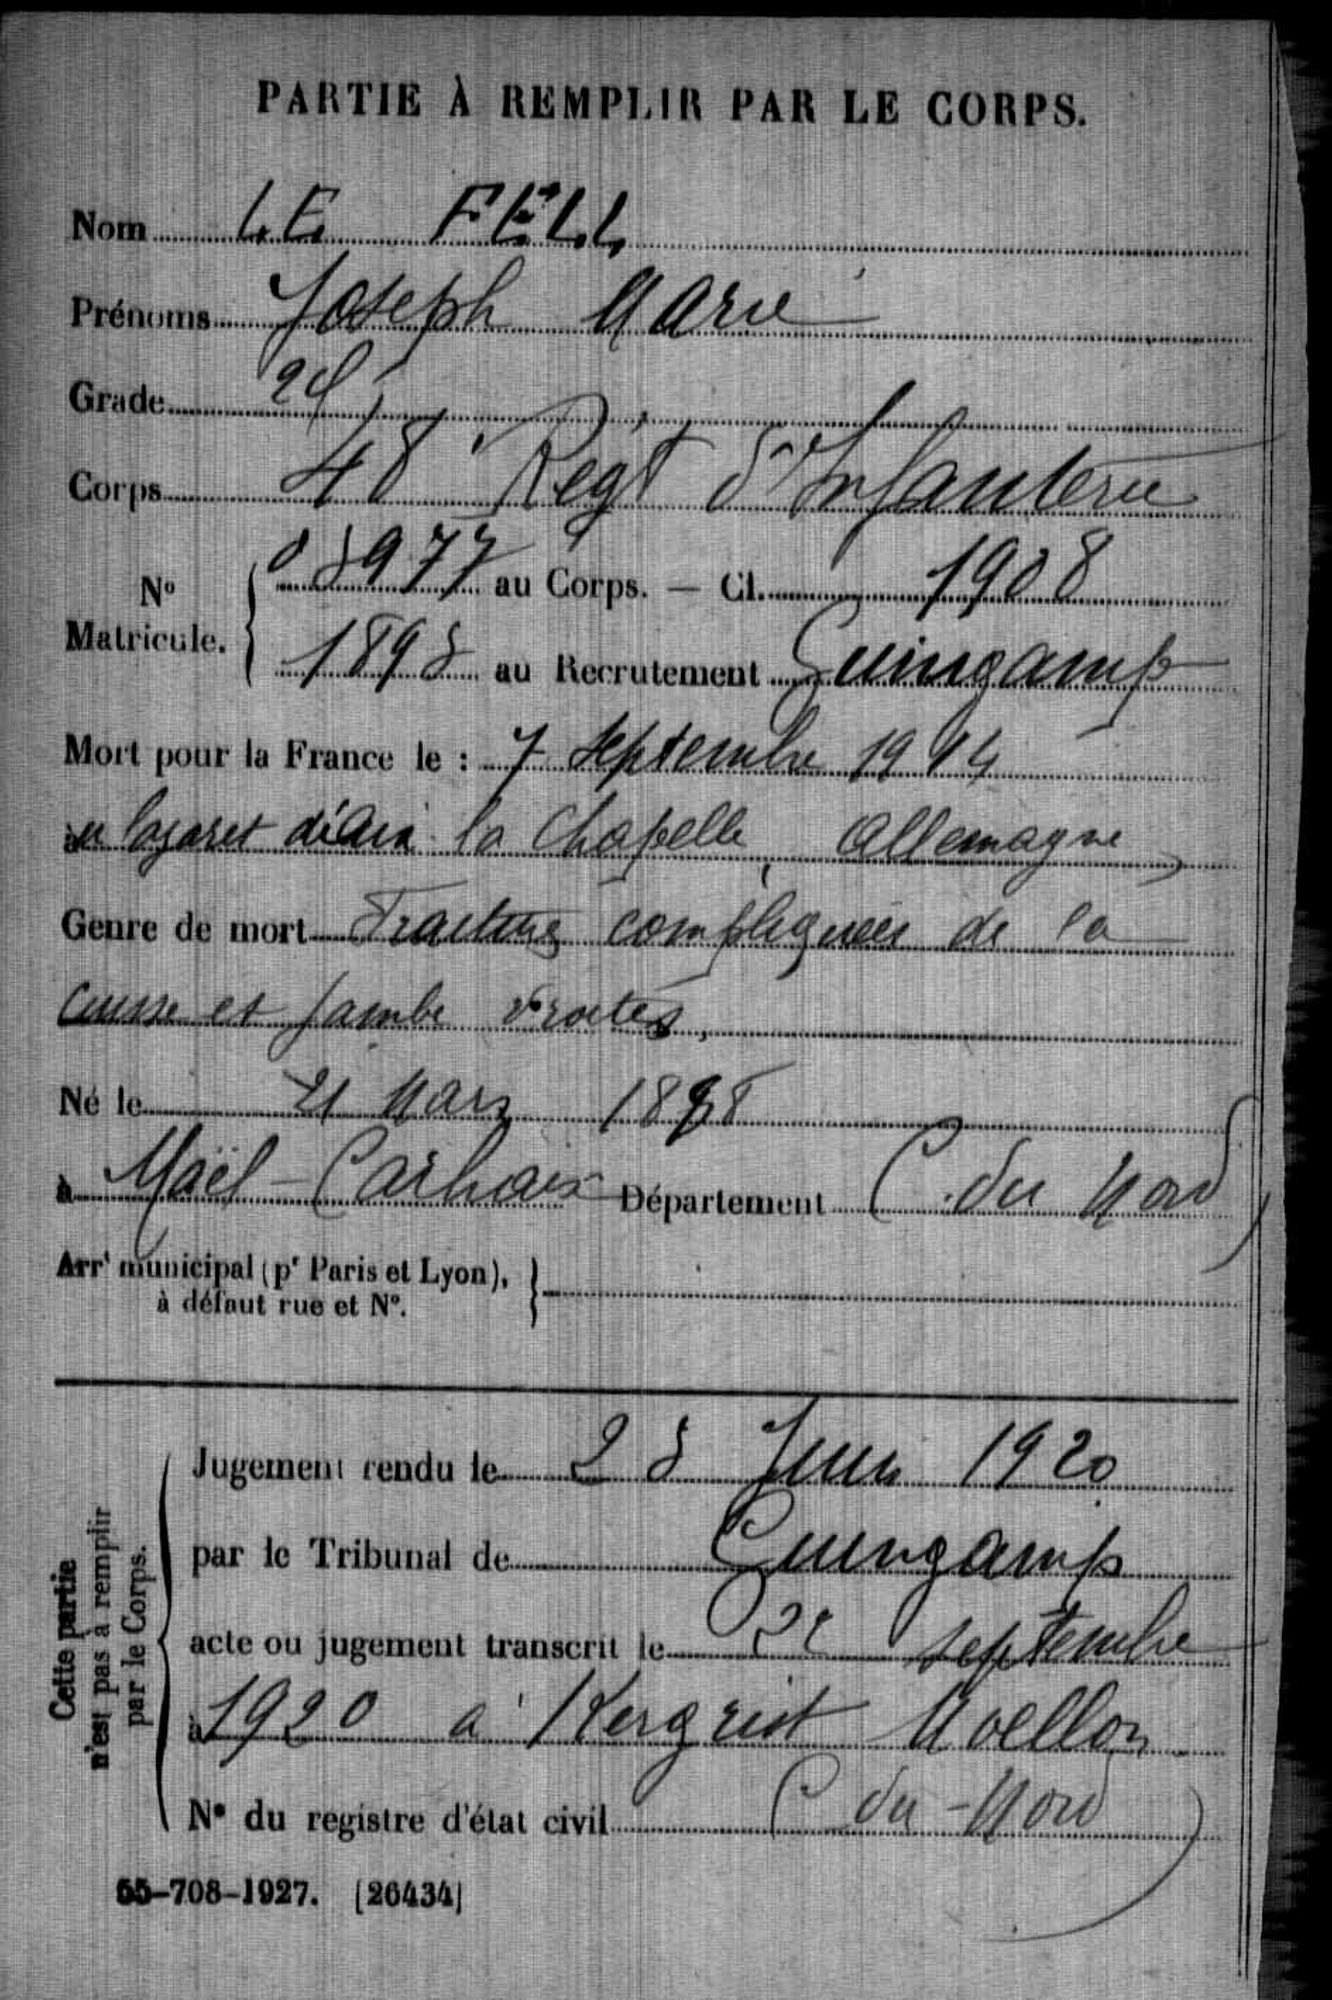 PARTIE À REMPLIR PAR LE CORPS.
Nom LE FELL
Prénoms Joseph Marie
Grade
Corps 48 Reg't d'Infanterie
N° Matricule. { 08977 au Corps. — Cl. 1908
1898 au Recrutement Guingamp
Mort pour la France le : 7 Septembre 1914
au lazaret d'Aix la Chapelle, Allemagne
Genre de mort Fractures compliquées de la
Cuisse et jambe droites,
Né le 21 Mars 1888
à Maël-Carhaix Département (C. du Nord)
Arrt municipal (pr Paris et Lyon), à défaut rue et N°. }
Cette partie n'est pas à remplir par le Corps.
Jugement rendu le 28 Juin 1920
par le Tribunal de Guingamp
acte ou jugement transcrit le septembre
1920 à Kergrist Moellou
N° du registre d'état civil (C du-Nord)
55-708-1927. [26434]